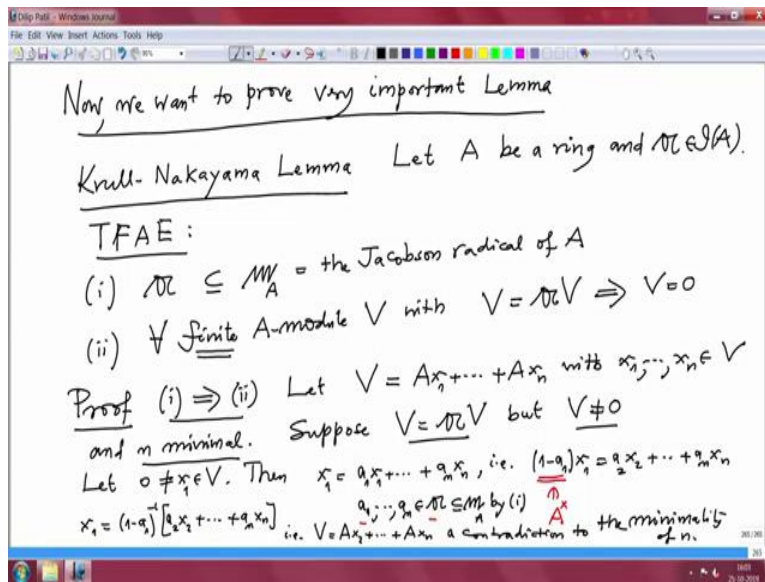 Dilip Patil - Windows Journal
File Edit View Insert Actions Tools Help
Now we want to prove very important Lemma
Krull-Nakayama Lemma Let A be a ring and 𝔞 ∈ 𝓘(A).
TFAE:
(i) 𝔞 ⊆ 𝔪_A = the Jacobson radical of A
(ii) ∀ finite A-module V with V = 𝔞V ⇒ V=0
Proof (i) ⇒ (ii) Let V = Ax₁+⋯+Axₙ with x₁,⋯,xₙ ∈ V
and n minimal. Suppose V = 𝔞V but V ≠ 0
Let 0 ≠ x₁ ∈ V. Then x₁ = a₁x₁+⋯+aₙxₙ, i.e. (1-a₁)x₁ = a₂x₂+⋯+aₙxₙ
a₁,⋯,aₙ ∈ 𝔞 ⊆ 𝔪_A by (i) ⇑ A^×
x₁ = (1-a₁)⁻¹[a₂x₂+⋯+aₙxₙ] i.e. V = Ax₂+⋯+Axₙ a contradiction to the minimality
of n.
265
16:01
25-10-2019